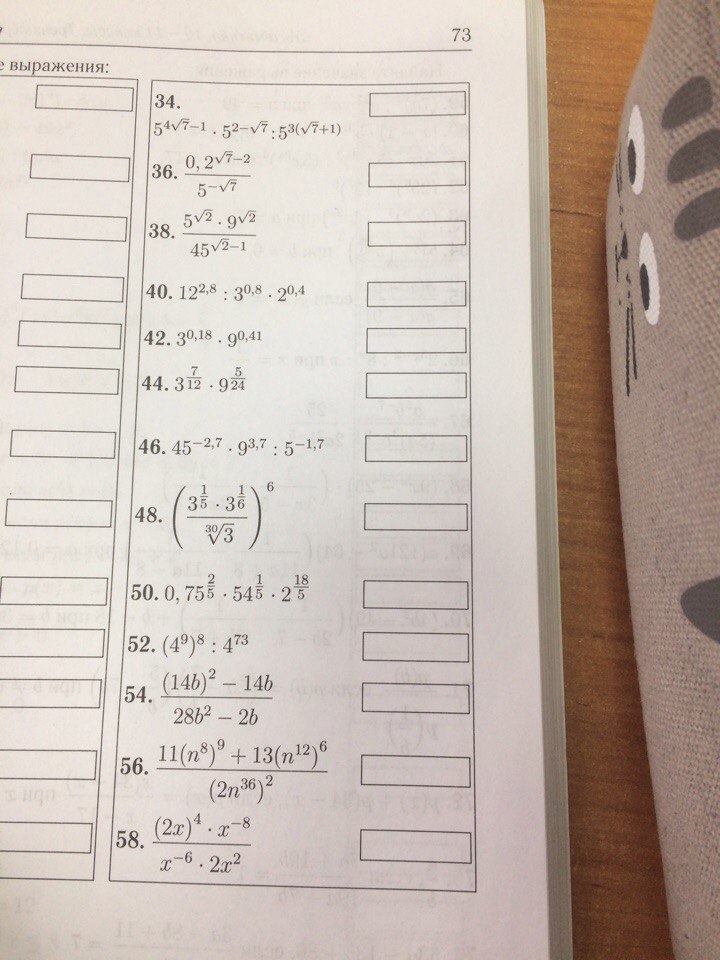 73
е выражения:
34.
5^{4√7−1} · 5^{2−√7} : 5^{3(√7+1)}
36. \frac{0,2^{√7−2}}{5^{−√7}}
38. \frac{5^{√2} · 9^{√2}}{45^{√2−1}}
40. 12^{2,8} : 3^{0,8} · 2^{0,4}
42. 3^{0,18} · 9^{0,41}
44. 3^{\frac{7}{12}} · 9^{\frac{5}{24}}
46. 45^{−2,7} · 9^{3,7} : 5^{−1,7}
48. \left(\frac{3^{\frac{1}{5}} · 3^{\frac{1}{6}}}{\sqrt[30]{3}}\right)^6
50. 0,75^{\frac{2}{5}} · 54^{\frac{1}{5}} · 2^{\frac{18}{5}}
52. (4^9)^8 : 4^{73}
54. \frac{(14b)^2 − 14b}{28b^2 − 2b}
56. \frac{11(n^8)^9 + 13(n^{12})^6}{(2n^{36})^2}
58. \frac{(2x)^4 · x^{−8}}{x^{−6} · 2x^2}